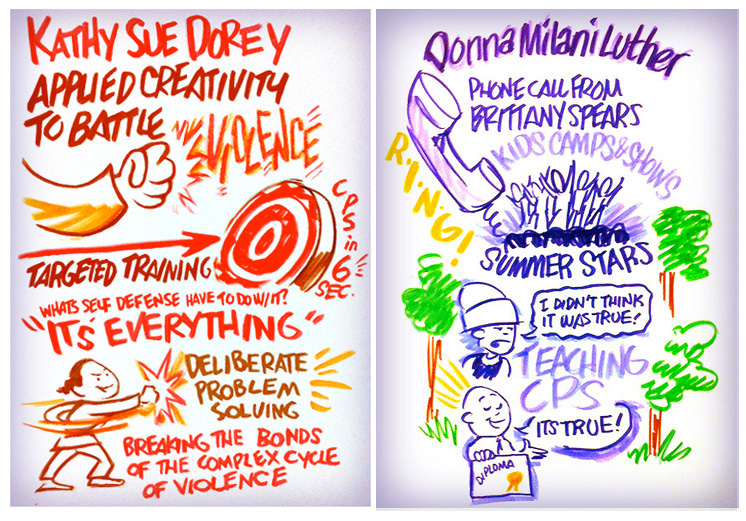 KATHY SUE DOREY
APPLIED CREATIVITY
TO BATTLE
VIOLENCE
C.P.S. in
6
SEC.
TARGETED TRAINING
WHATS SELF DEFENSE HAVE TO DO W/IT?
"IT'S EVERYTHING"
DELIBERATE
PROBLEM
SOLVING
BREAKING THE BONDS
OF THE COMPLEX CYCLE
OF VIOLENCE
Donna Milani Luther
PHONE CALL FROM
BRITTANY SPEARS
R.I.N.G!
KIDS CAMPS & SHOWS
SUMMER STARS
I DIDN'T THINK
IT WAS TRUE!
TEACHING
CPS
ITS TRUE!
DIPLOMA